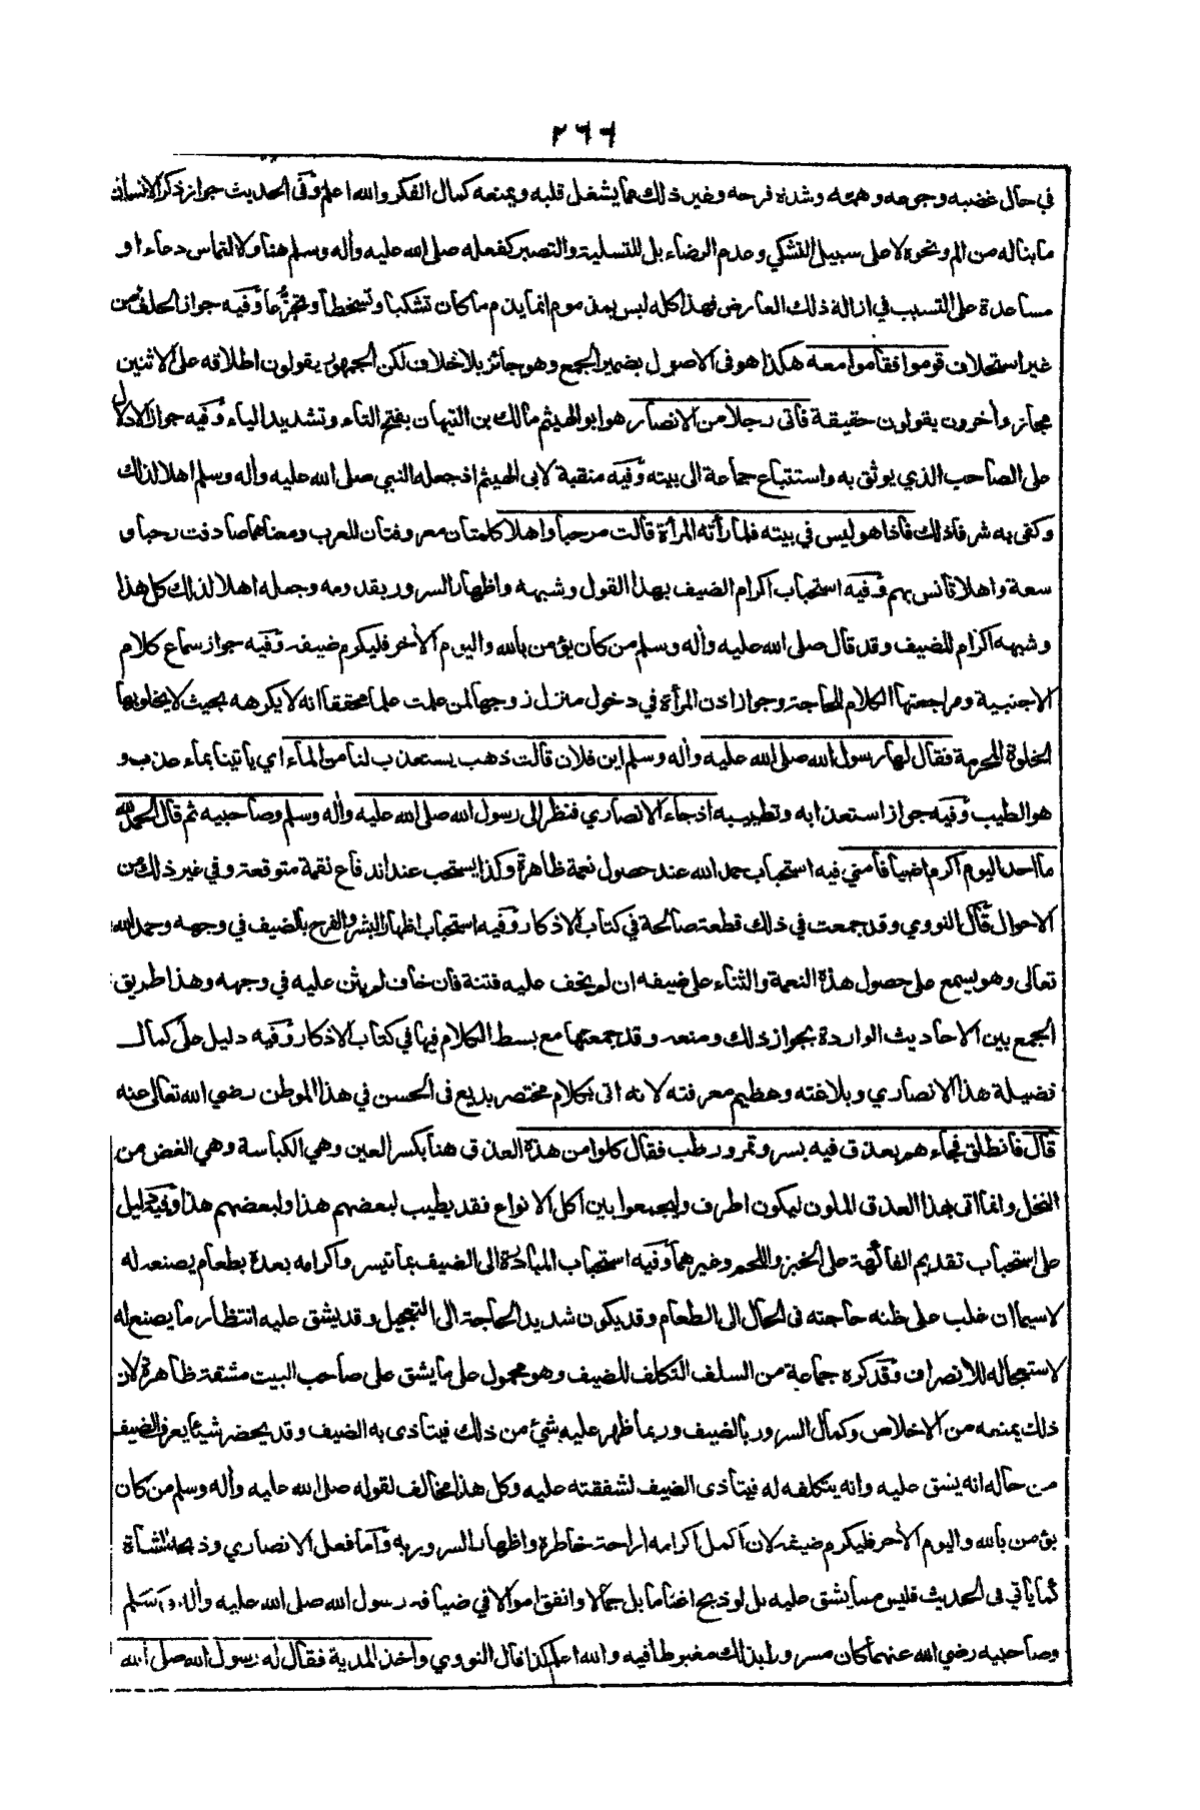 ٢٦٦
في حال غضبه وجوعه وهمه وشدة فرحه وغير ذلك مما يشغل قلبه ويمنعه كمال الفكر والله اعلم وفي الحديث جواز ذكر الانسان
ما يناله من الم ونحوه لا على سبيل التشكي وعدم الرضاء بل للتسلية والتصبر كفعله صلى الله عليه وأله وسلم هنا ولالتماس دعاء او
مساعدة على التسبب في ازالة ذلك العارض فهذا كله ليس بمذموم انما يذم ما كان تشكيا وتسخطا وتجزعا وفيه جواز الحلف من
غير استحلاف قوموا فقاموا معه هكذا هو في الاصول بضمير الجمع وهو جائز بلا خلاف لكن الجمهور يقولون اطلاقه على الاثنين
مجاز وأخرون يقولون حقيقة فأتى رجلا من الانصار هو ابو الهيثم مالك بن التيهان بفتح التاء وتشديد الياء وفيه جواز الادلال
على الصاحب الذي يوثق به واستتباع جماعة الى بيته وفيه منقبة لابي الهيثم اذ جعله النبي صلى الله عليه وأله وسلم اهلا لذلك
وكفى به شرفا ذلك فاذا هو ليس في بيته فلما رأته المرأة قالت مرحبا واهلا كلمتان معروفتان للعرب ومعناهما صادفت رحبا و
سعة واهلا تأنس بهم وفيه استحباب اكرام الضيف بهذا القول وشبهه واظهار السرور بقدومه وجعله اهلا لذلك كل هذا
وشبهه اكرام للضيف وقد قال صلى الله عليه وأله وسلم من كان يؤمن بالله واليوم الأخر فليكرم ضيفه وفيه جواز سماع كلام
الاجنبية ومراجعتها الكلام للحاجة وجواز اذن المرأة في دخول منزل زوجها لمن علمت علما محققا انه لا يكرهه بحيث لا يخلو بها
الخلوة المحرمة فقال لها رسول الله صلى الله عليه وأله وسلم اين فلان قالت ذهب يستعذب لنا من الماء اي يأتينا بماء عذب و
هو الطيب وفيه جواز استعذابه وتطييبه اذ جاء الانصاري فنظر الى رسول الله صلى الله عليه وأله وسلم وصاحبيه ثم قال الحمد لله
ما احد اليوم اكرم اضيافا مني فيه استحباب حمد الله عند حصول نعمة ظاهرة وكذا يستحب عند اندفاع نقمة متوقعة وفي غير ذلك من
الاحوال قال النووي وقد جمعت في ذلك قطعة صالحة في كتاب الاذكار وفيه استحباب اظهار البشر والفرح بالضيف في وجهه وحمد الله
تعالى وهو يسمع على حصول هذه النعمة والثناء على ضيفه ان لم يخف عليه فتنة فان خاف لم يثن عليه في وجهه وهذا طريق
الجمع بين الاحاديث الواردة بجواز ذلك ومنعه وقد جمعتها مع بسط الكلام فيها في كتاب الاذكار وفيه دليل على كمال
فضيلة هذا الانصاري وبلاغته وعظيم معرفته لانه اتى بكلام مختصر بديع في الحسن في هذا الموطن رضي الله تعالى عنه
قال فانطلق فجاءهم بعذق فيه بسر وتمر ورطب فقال كلوا من هذه العذق هنا بكسر العين وهي الكباسة وهي الغصن من
النخل وانما اتى بهذا العذق الملون ليكون اطرف وليجمعوا بين اكل الانواع فقد يطيب لبعضهم هذا ولبعضهم هذا وفيه دليل
على استحباب تقديم الفاكهة على الخبز واللحم وغيرهما وفيه استحباب المبادرة الى الضيف بما تيسر واكرامه بعده بطعام يصنعه له
لاسيما ان غلب على ظنه حاجته في الحال الى الطعام وقد يكون شديد الحاجة الى التعجيل وقد يشق عليه انتظار ما يصنع له
لاستعجاله للانصراف وقد كره جماعة من السلف التكلف للضيف وهو محمول على ما يشق على صاحب البيت مشقة ظاهرة لان
ذلك يمنعه من الاخلاص وكمال السرور بالضيف وربما ظهر عليه شيء من ذلك فيتأذى به الضيف وقد يحضر شيئا يعرف الضيف
من حاله انه يشق عليه وانه يتكلفه له فيتأذى الضيف لشفقته عليه وكل هذا مخالف لقوله صلى الله عليه وأله وسلم من كان
يؤمن بالله واليوم الأخر فليكرم ضيفه لان اكمل اكرامه اراحة خاطره واظهار السرور به وأما فعل الانصاري وذبحه الشاة
كما يأتي في الحديث فليس مما يشق عليه بل لو ذبح اغناما بل جمالا وانفق اموالا في ضيافة رسول الله صلى الله عليه وأله وسلم
وصاحبيه رضي الله عنهما كان مسرورا بذلك مغبوطا فيه والله اعلم كذا قال النووي واخذ المدية فقال له رسول الله صلى الله